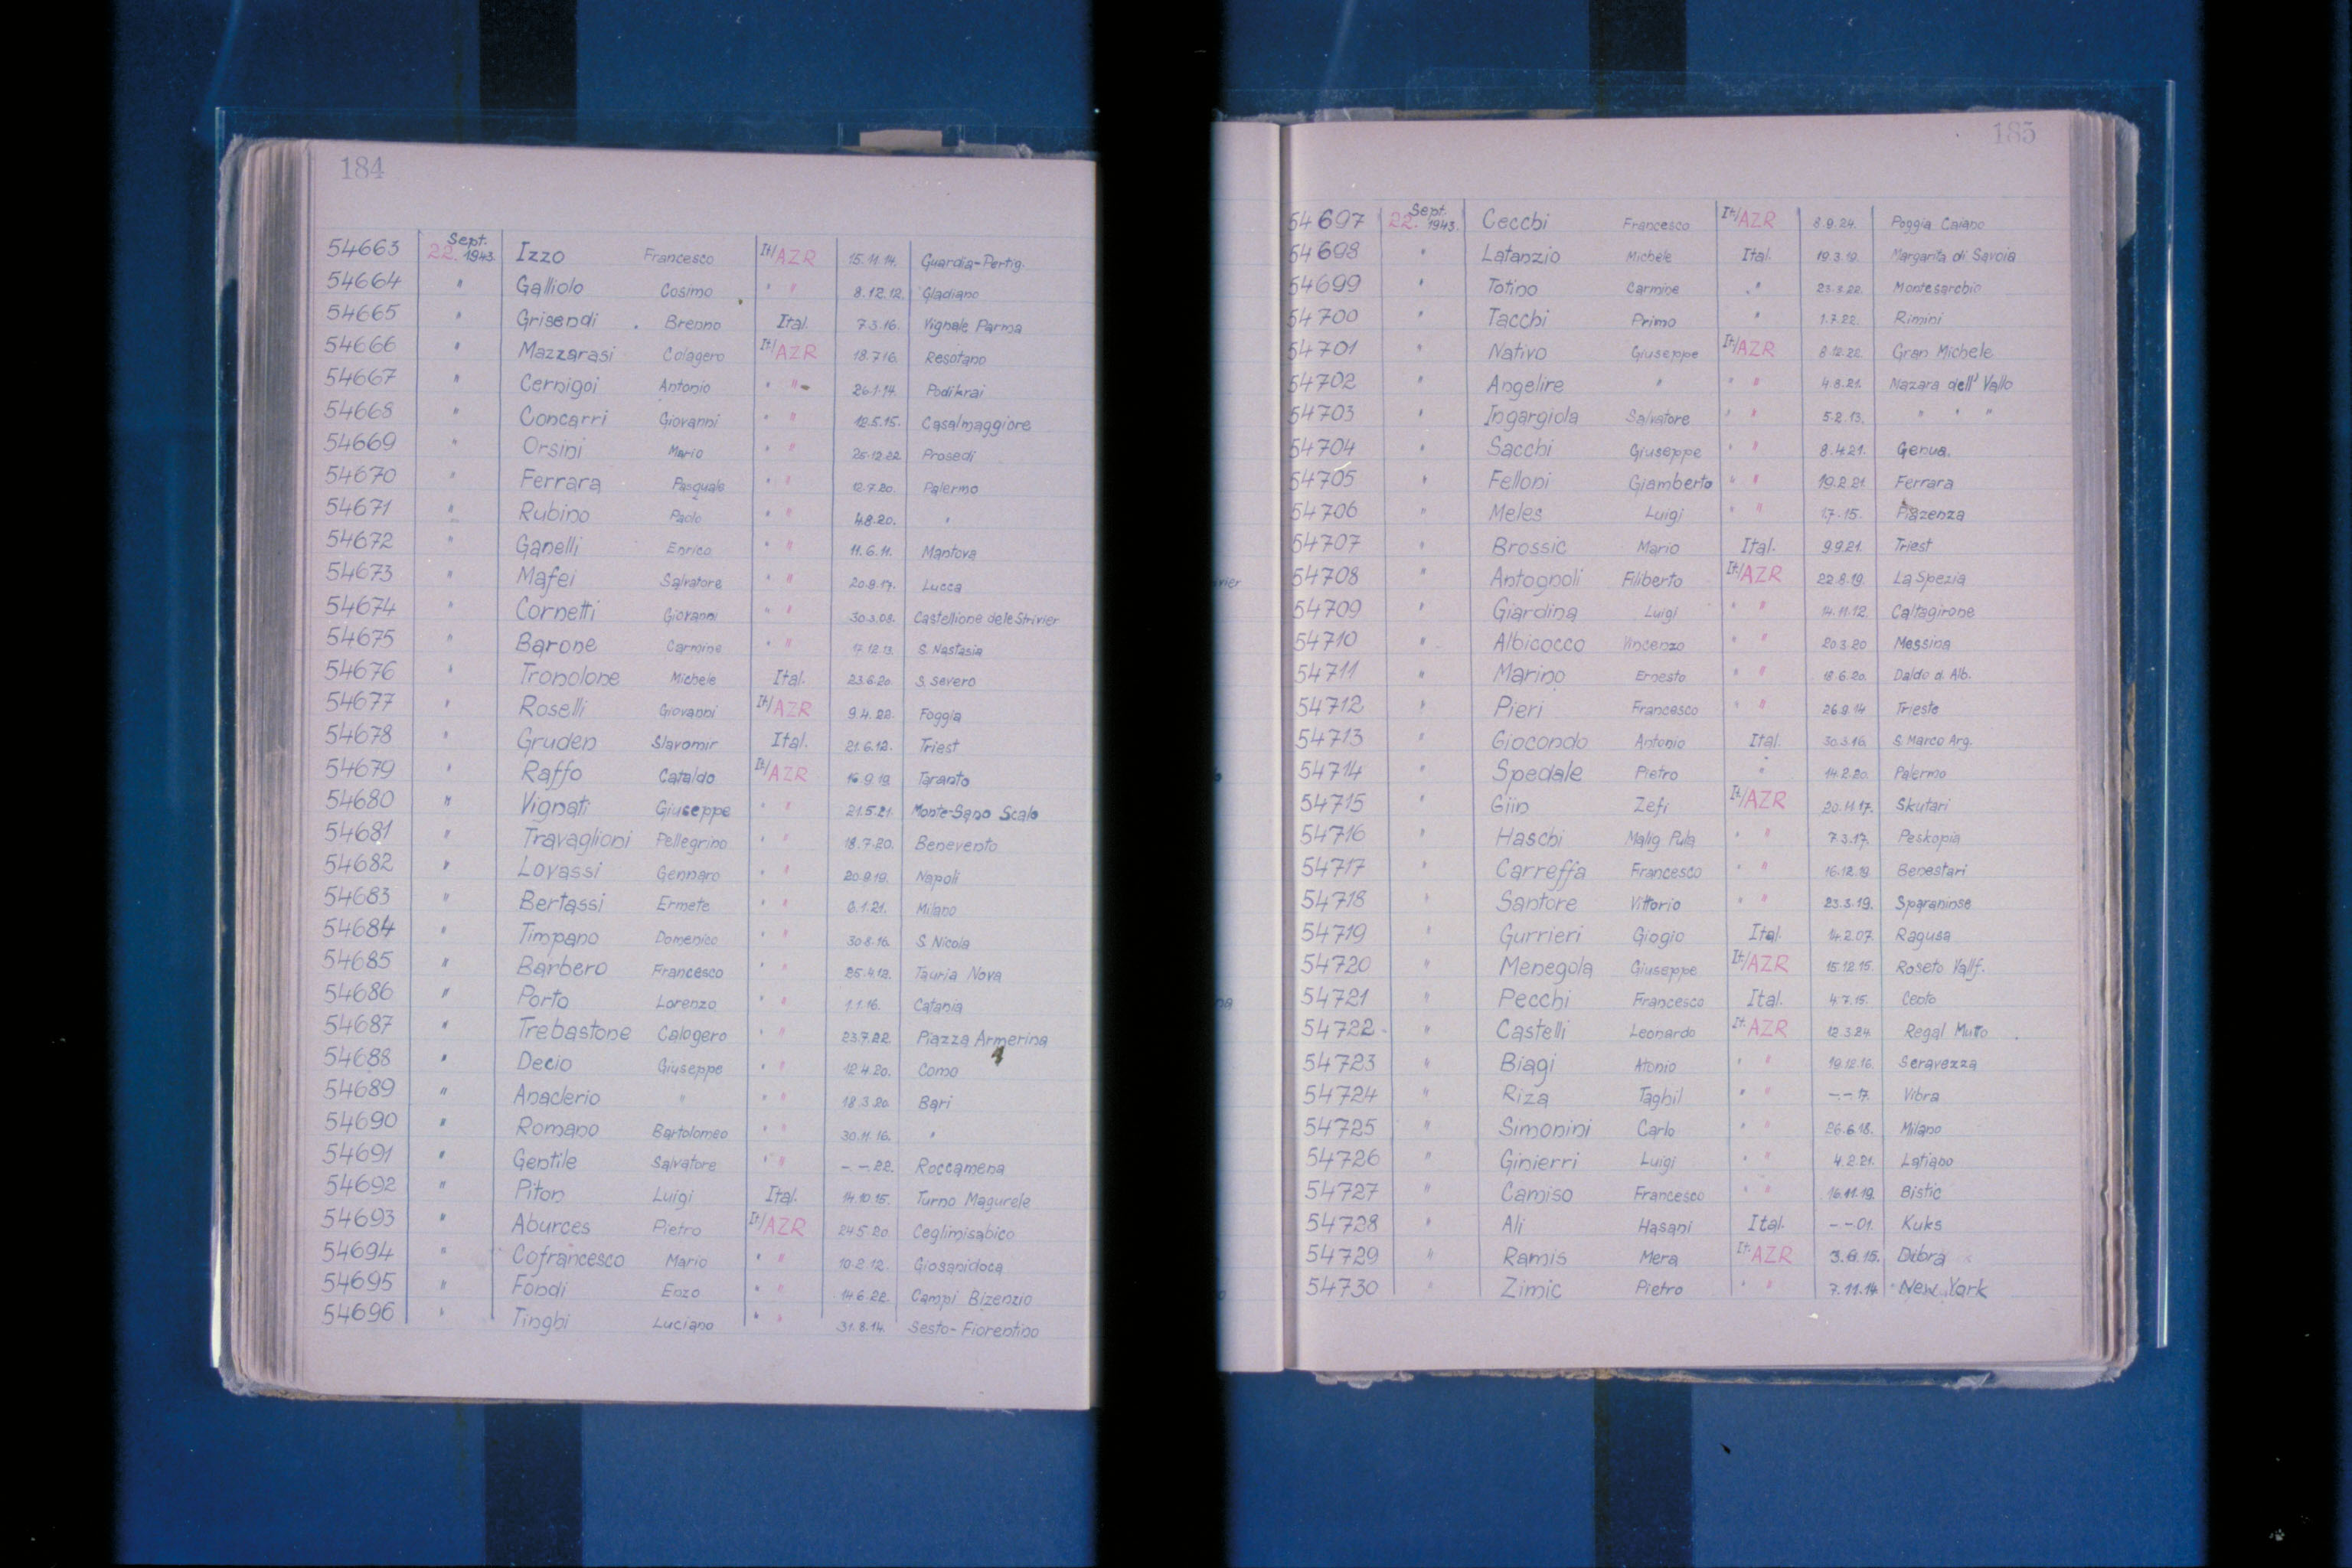 184
54663 22. Sept. 1943. Izzo Francesco It/AZR 15.11.14. Guardia-Pertig.
54664 " Galliolo Cosimo " " 8.12.12. Gladiano
54665 " Grisendi Brenno Ital. 7.3.16. Vignale Parma
54666 " Mazzarasi Colagero It/AZR 18.7.16. Resotano
54667 " Cernigoi Antonio " " 26.1.14. Podikrai
54668 " Concarri Giovanni " " 12.5.15. Casalmaggiore
54669 " Orsini Mario " " 25.12.22. Prosedi
54670 " Ferrara Pasquale " " 12.7.20. Palermo
54671 " Rubino Paolo " " 4.8.20. "
54672 " Ganelli Enrico " " 11.6.11. Mantova
54673 " Mafei Salvatore " " 20.9.17. Lucca
54674 " Cornetti Giovanni " " 30.3.08. Castellione dele Strivier
54675 " Barone Carmine " " 17.12.13. S. Nastasia
54676 " Tronolone Michele Ital. 23.6.20. S. Severo
54677 " Roselli Giovanni It/AZR 9.4.22. Foggia
54678 " Gruden Slavomir Ital. 21.6.12. Triest
54679 " Raffo Cataldo It/AZR 16.9.19. Taranto
54680 " Vignati Giuseppe " " 21.5.21. Monte-Sano Scalo
54681 " Travaglioni Pellegrino " " 18.7.20. Benevento
54682 " Lovassi Gennaro " " 20.9.19. Napoli
54683 " Bertassi Ermete " " 6.1.21. Milano
54684 " Timpano Domenico " " 30.8.16. S. Nicola
54685 " Barbero Francesco " " 25.4.12. Tauria Nova
54686 " Porto Lorenzo " " 1.1.16. Catania
54687 " Trebastone Calogero " " 23.7.22. Piazza Armerina
54688 " Decio Giuseppe " " 12.4.20. Como
54689 " Anaclerio " " " 18.3.20. Bari
54690 " Romano Bartolomeo " " 30.11.16. "
54691 " Gentile Salvatore " " – – 22. Roccamena
54692 " Piton Luigi Ital. 14.10.15. Turno Magurele
54693 " Aburces Pietro It/AZR 24.5.20. Ceglimisabico
54694 " Cofrancesco Mario " " 10.2.12. Giosanidoca
54695 " Fondi Enzo " " 14.6.22. Campi Bizenzio
54696 " Tinghi Luciano " " 31.8.14. Sesto-Fiorentino
185
54697 22. Sept. 1943. Cecchi Francesco It/AZR 8.9.24. Poggia Caiano
54698 " Latanzio Michele Ital. 19.3.19. Margarita di Savoia
54699 " Totino Carmine " 23.3.22. Montesarchio
54700 " Tacchi Primo " 1.7.22. Rimini
54701 " Nativo Giuseppe It/AZR 8.12.22. Gran Michele
54702 " Angelire " " " 4.8.21. Mazara dell' Vallo
54703 " Ingargiola Salvatore " " 5.2.13. " " "
54704 " Sacchi Giuseppe " " 8.4.21. Genua.
54705 " Felloni Giamberto " " 19.2.21. Ferrara
54706 " Meles Luigi " " 1.7.15. Piazenza
54707 " Brossic Mario Ital. 9.9.21. Triest
54708 " Antognoli Filiberto It/AZR 22.8.19. La Spezia
54709 " Giardina Luigi " " 14.11.12. Caltagirone
54710 " Albicocco Vincenzo " " 20.3.20 Messina
54711 " Marino Ernesto " " 18.6.20. Daldo d. Alb.
54712 " Pieri Francesco " " 26.9.14 Trieste
54713 " Giocondo Antonio Ital. 30.3.16. S. Marco Arg.
54714 " Spedale Pietro " 14.2.20. Palermo
54715 " Giin Zefi It/AZR 20.11.17. Skutari
54716 " Haschi Malig Pula " " 7.3.17. Peskopia
54717 " Carreffa Francesco " " 16.12.19. Benestari
54718 " Santore Vittorio " " 23.3.19. Sparaninse
54719 " Gurrieri Giogio Ital. 14.2.07. Ragusa
54720 " Menegola Giuseppe It/AZR 15.12.15. Roseto Vallf.
54721 " Pecchi Francesco Ital. 4.7.15. Cento
54722 " Castelli Leonardo It. AZR 12.3.24. Regal Muto
54723 " Biagi Atonio " " 19.12.16. Seravezza
54724 " Riza Taghil " " –.– 17. Vibra
54725 " Simonini Carlo " " 26.6.18. Milano
54726 " Ginierri Luigi " " 4.2.21. Latiano
54727 " Camiso Francesco " " 16.11.19. Bistic
54728 " Ali Hasani Ital. – – 01. Kuks
54729 " Ramis Mera It. AZR 3.6.15. Dibra
54730 " Zimic Pietro " " 7.11.14 New York